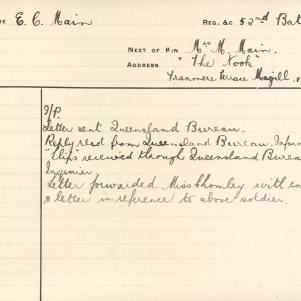 E. C. Main REG. &C 52nd Bat
NEXT OF KIN Mrs M. Main.
ADDRESS "The Nook"
Tranmere Terrace Magill.
I/P.
Letter sent Queensland Bureau.
Reply recd from Queensland Bureau. Inform
"Slips" received though Queensland Burea
Inquiries.
Letter forwarded Miss Chomley with en
a letter in reference to above soldier.